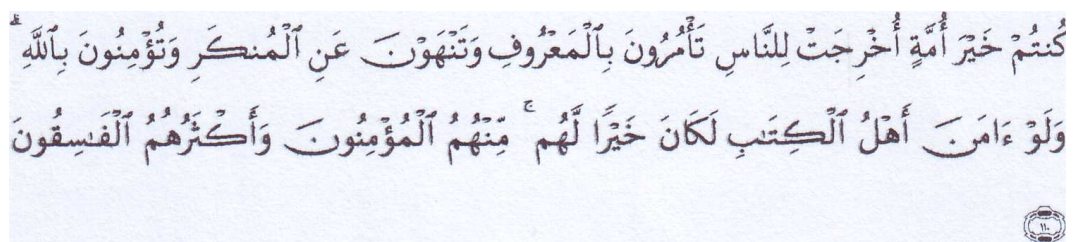 كُنتُمْ خَيْرَ أُمَّةٍ أُخْرِجَتْ لِلنَّاسِ تَأْمُرُونَ بِٱلْمَعْرُوفِ وَتَنْهَوْنَ عَنِ ٱلْمُنكَرِ وَتُؤْمِنُونَ بِٱللَّهِ ۗ
وَلَوْ ءَامَنَ أَهْلُ ٱلْكِتَٰبِ لَكَانَ خَيْرًا لَّهُم ۚ مِّنْهُمُ ٱلْمُؤْمِنُونَ وَأَكْثَرُهُمُ ٱلْفَٰسِقُونَ
١١٠